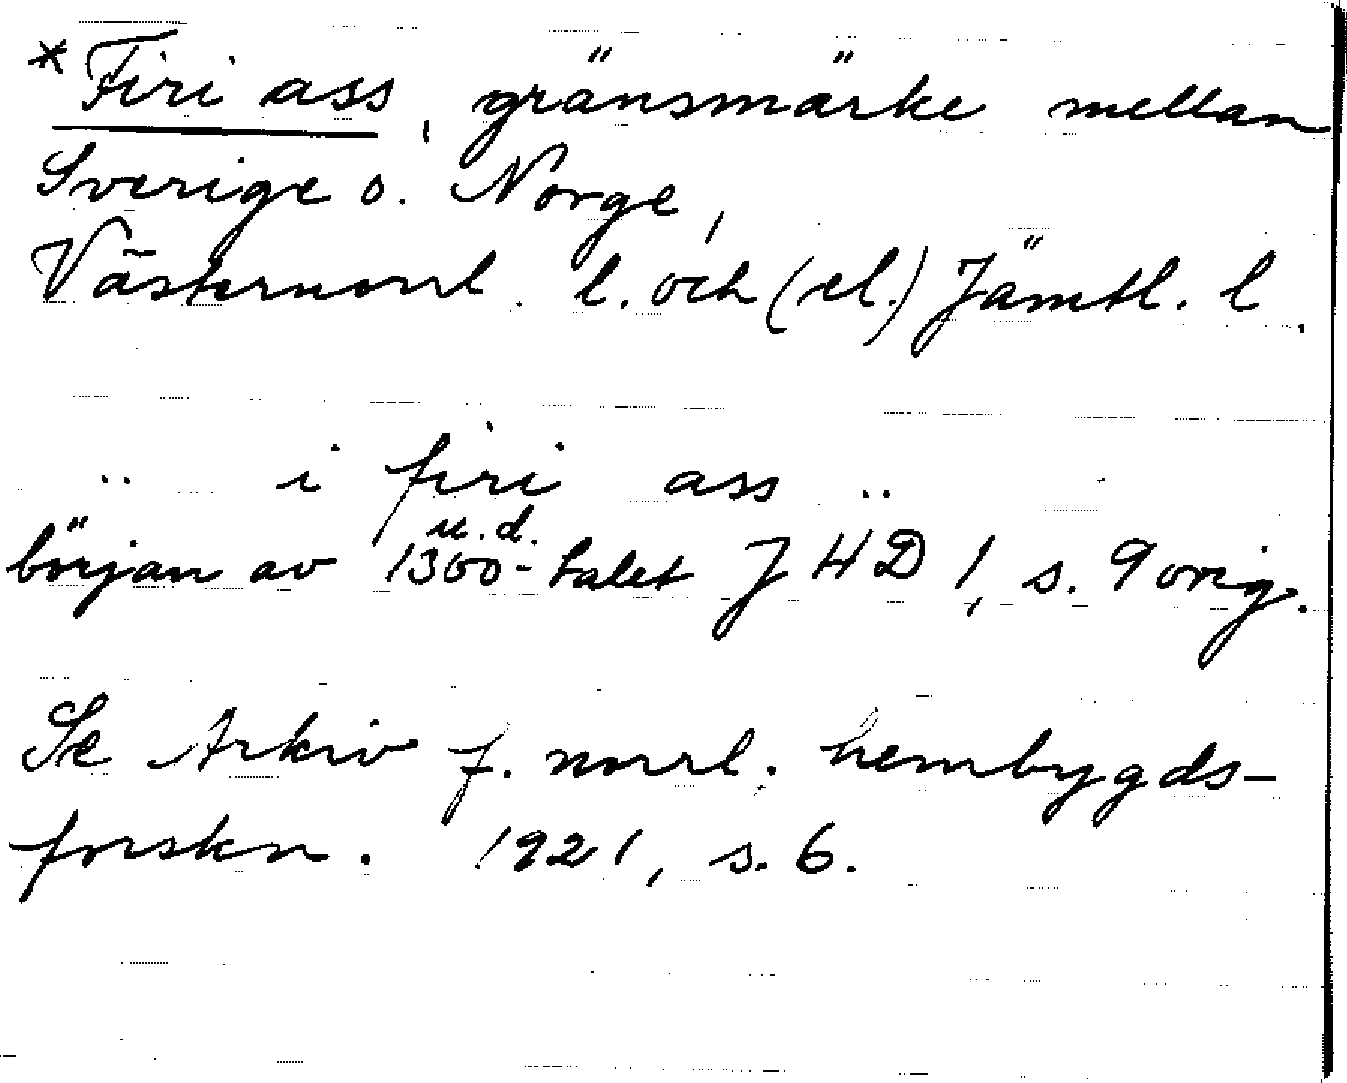 * Firi ass, gränsmärke mellan
Sverige o. Norge,
Västernorrl. l. och (el.) Jämtl. l.
.. i firi ass ..
u.d.
början av 1300-talet JHD 1, s. 9 orig.
Se Arkiv f. norrl. hembygds-
forskn. 1921, s. 6.